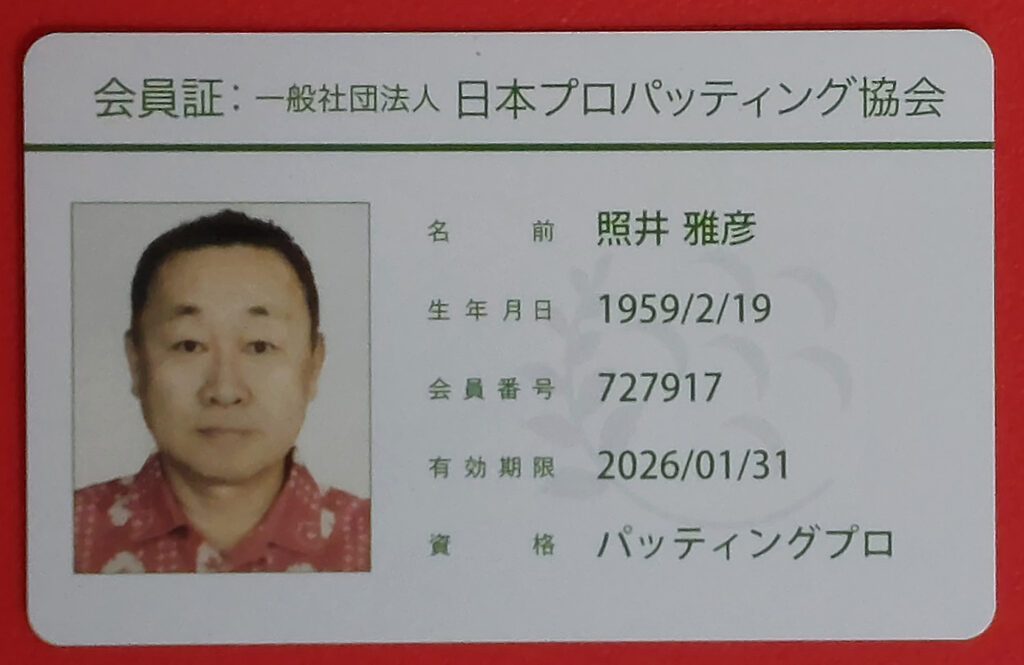 会員証：一般社団法人 日本プロパッティング協会
名前 照井 雅彦
生年月日 1959/2/19
会員番号 727917
有効期限 2026/01/31
資格 パッティングプロ